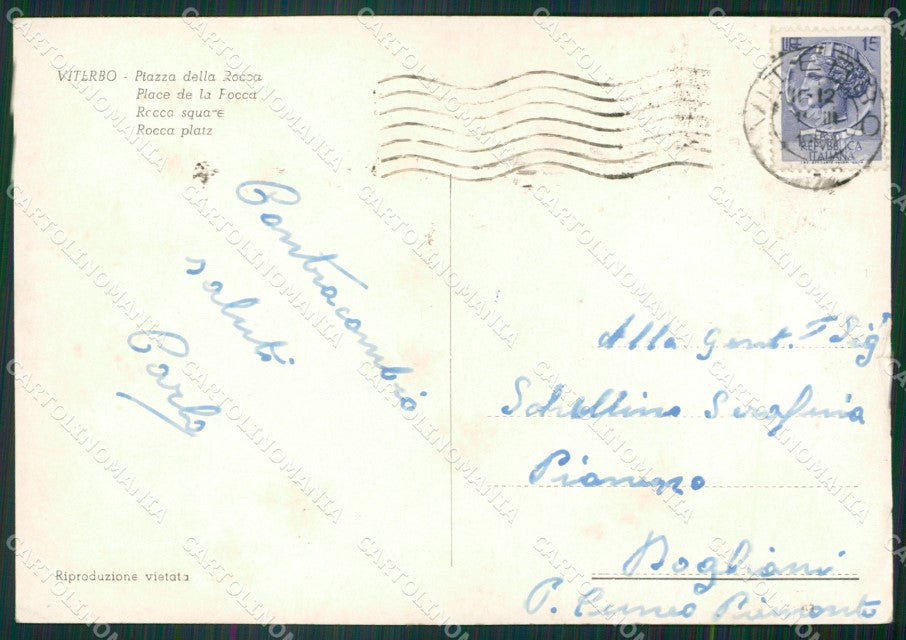 VITERBO - Piazza della Rocca
Place de la Rocca
Rocca square
Rocca platz
LIRE 15
REPVBBLICA
ITALIANA
VITERBO
Contracambio
saluti
Carlo
Alla Gent. Sig
Schellino Serafina
Pianezzo
Dogliani
P. Cuneo Piemonte
Riproduzione vietata
CARTOLINOMANIA